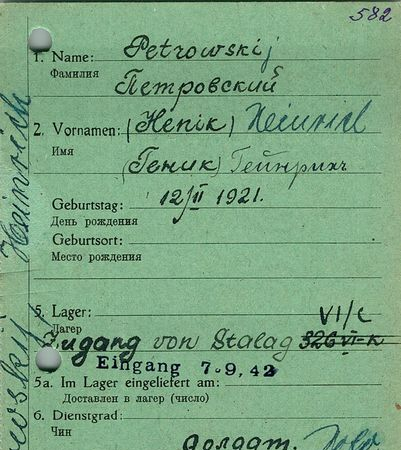 582
1. Name: Petrowskij
Фамилия Петровский
2. Vornamen: (Henik) Heinrich
Имя (Геник) Гейнрихъ
Geburtstag: 12/II 1921.
День рождения
Geburtsort:
Место рождения
5. Lager: VI/C
Лагерь
Zugang von Stalag 326 VI-K
Eingang 7.9.42
5a. Im Lager eingeliefert am:
Доставлен в лагерь (число)
6. Dienstgrad:
Чин солдат.
Heinrich